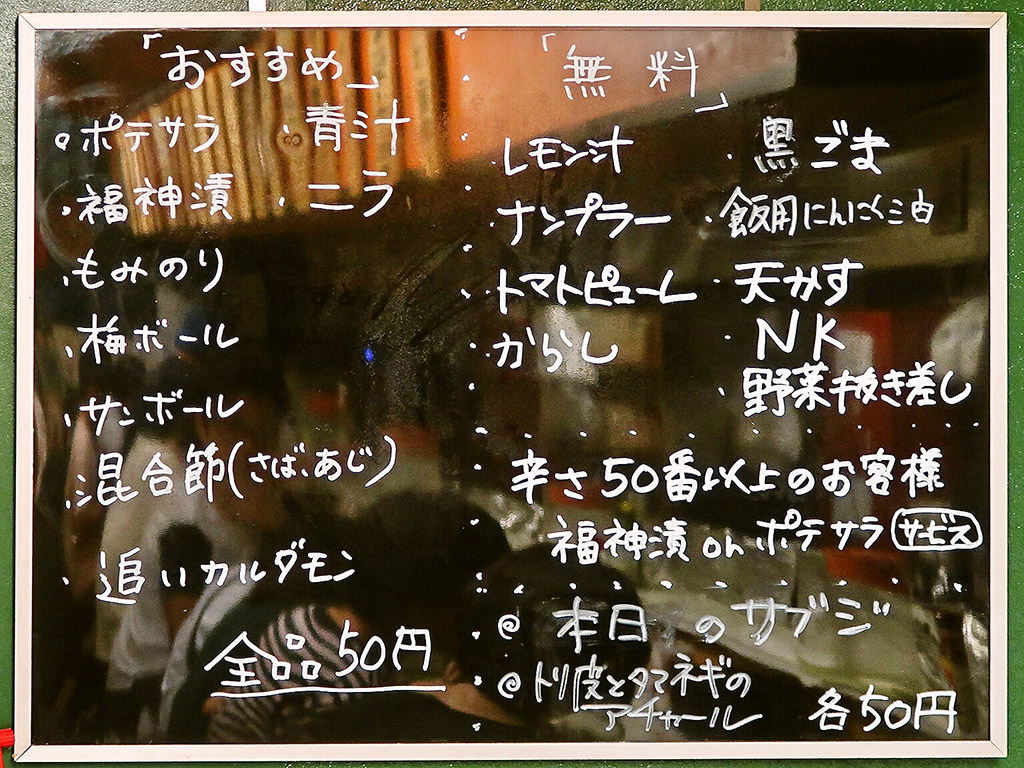 「おすすめ」
ポテサラ ・青汁
・福神漬 ・ニラ
・もみのり
・梅ボール
・サンボール
・混合節(さば、あじ)
・追いカルダモン
全品50円
「無料」
・レモン汁 ・黒ごま
・ナンプラー ・飯用にんにく油
・トマトピューレ ・天かす
・からし ・NK
・野菜抜き差し
辛さ50番以上のお客様
福神漬 or ポテサラ サービス
@ 本日のサブジ
@ トリ皮とタマネギの
アチャール 各50円